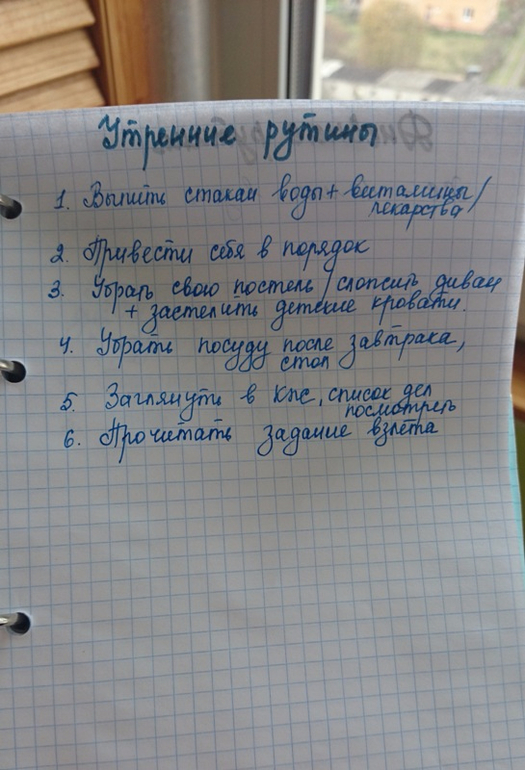 Утренние рутины
1. Выпить стакан воды + витамины/
лекарства
2. Привести себя в порядок
3. Убрать свою постель / сложить диван
+ застелить детские кровати.
4. Убрать посуду после завтрака,
стол
5. Заглянуть в Кпс, список дел
посмотреть
6. Прочитать задание взлёта